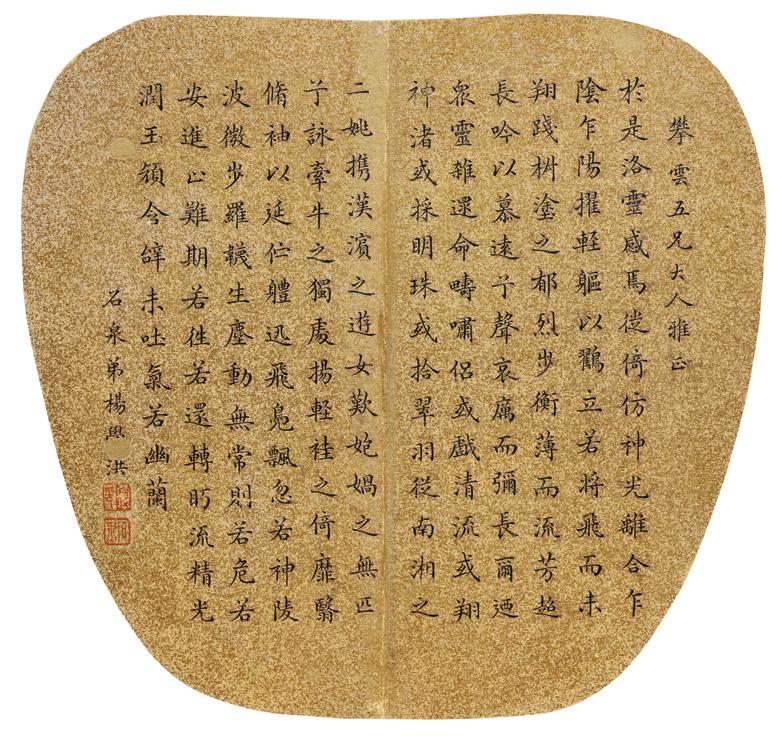 攀雲五兄大人雅正
於是洛靈感焉徙倚仿神光離合乍
陰乍陽擢軽軀以鸖立若將飛而未
翔踐椒塗之郁烈步衡薄而流芳超
長吟以慕遠兮聲哀厲而彌長爾迺
眾靈雜遝命疇嘯侶或戲清流或翔
神渚或採明珠或拾翠羽從南湘之
二姚携漢濱之遊女歎媧之無匹
兮詠牽牛之獨處揚軽袿之倚靡翳
脩袖以延佇軆迅飛鳧飄忽若神陵
波微步羅韈生塵動無常則若危若
安進止難期若往若還轉眄流精光
潤玉顏含辭未吐氣若幽蘭
石泉弟楊洪